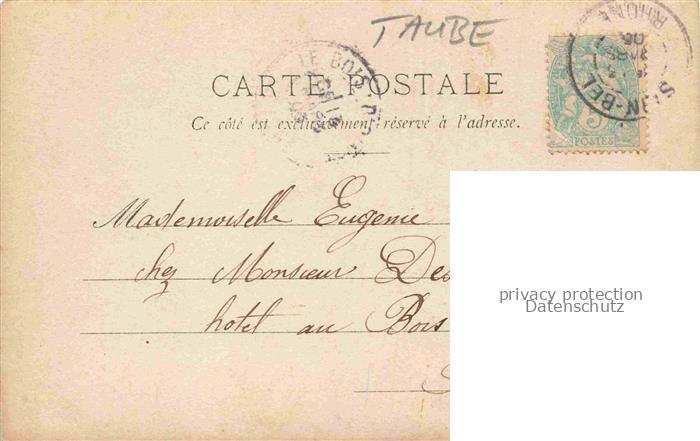 TAUBE
CARTE POSTALE
Ce côté est exclusivement réservé à l'adresse.
LE BOIS
SAIN-BEL
RHONE
5
POSTES
Mademoiselle Eugenie
chez Monsieur Des
hotel au Bois
privacy protection
Datenschutz